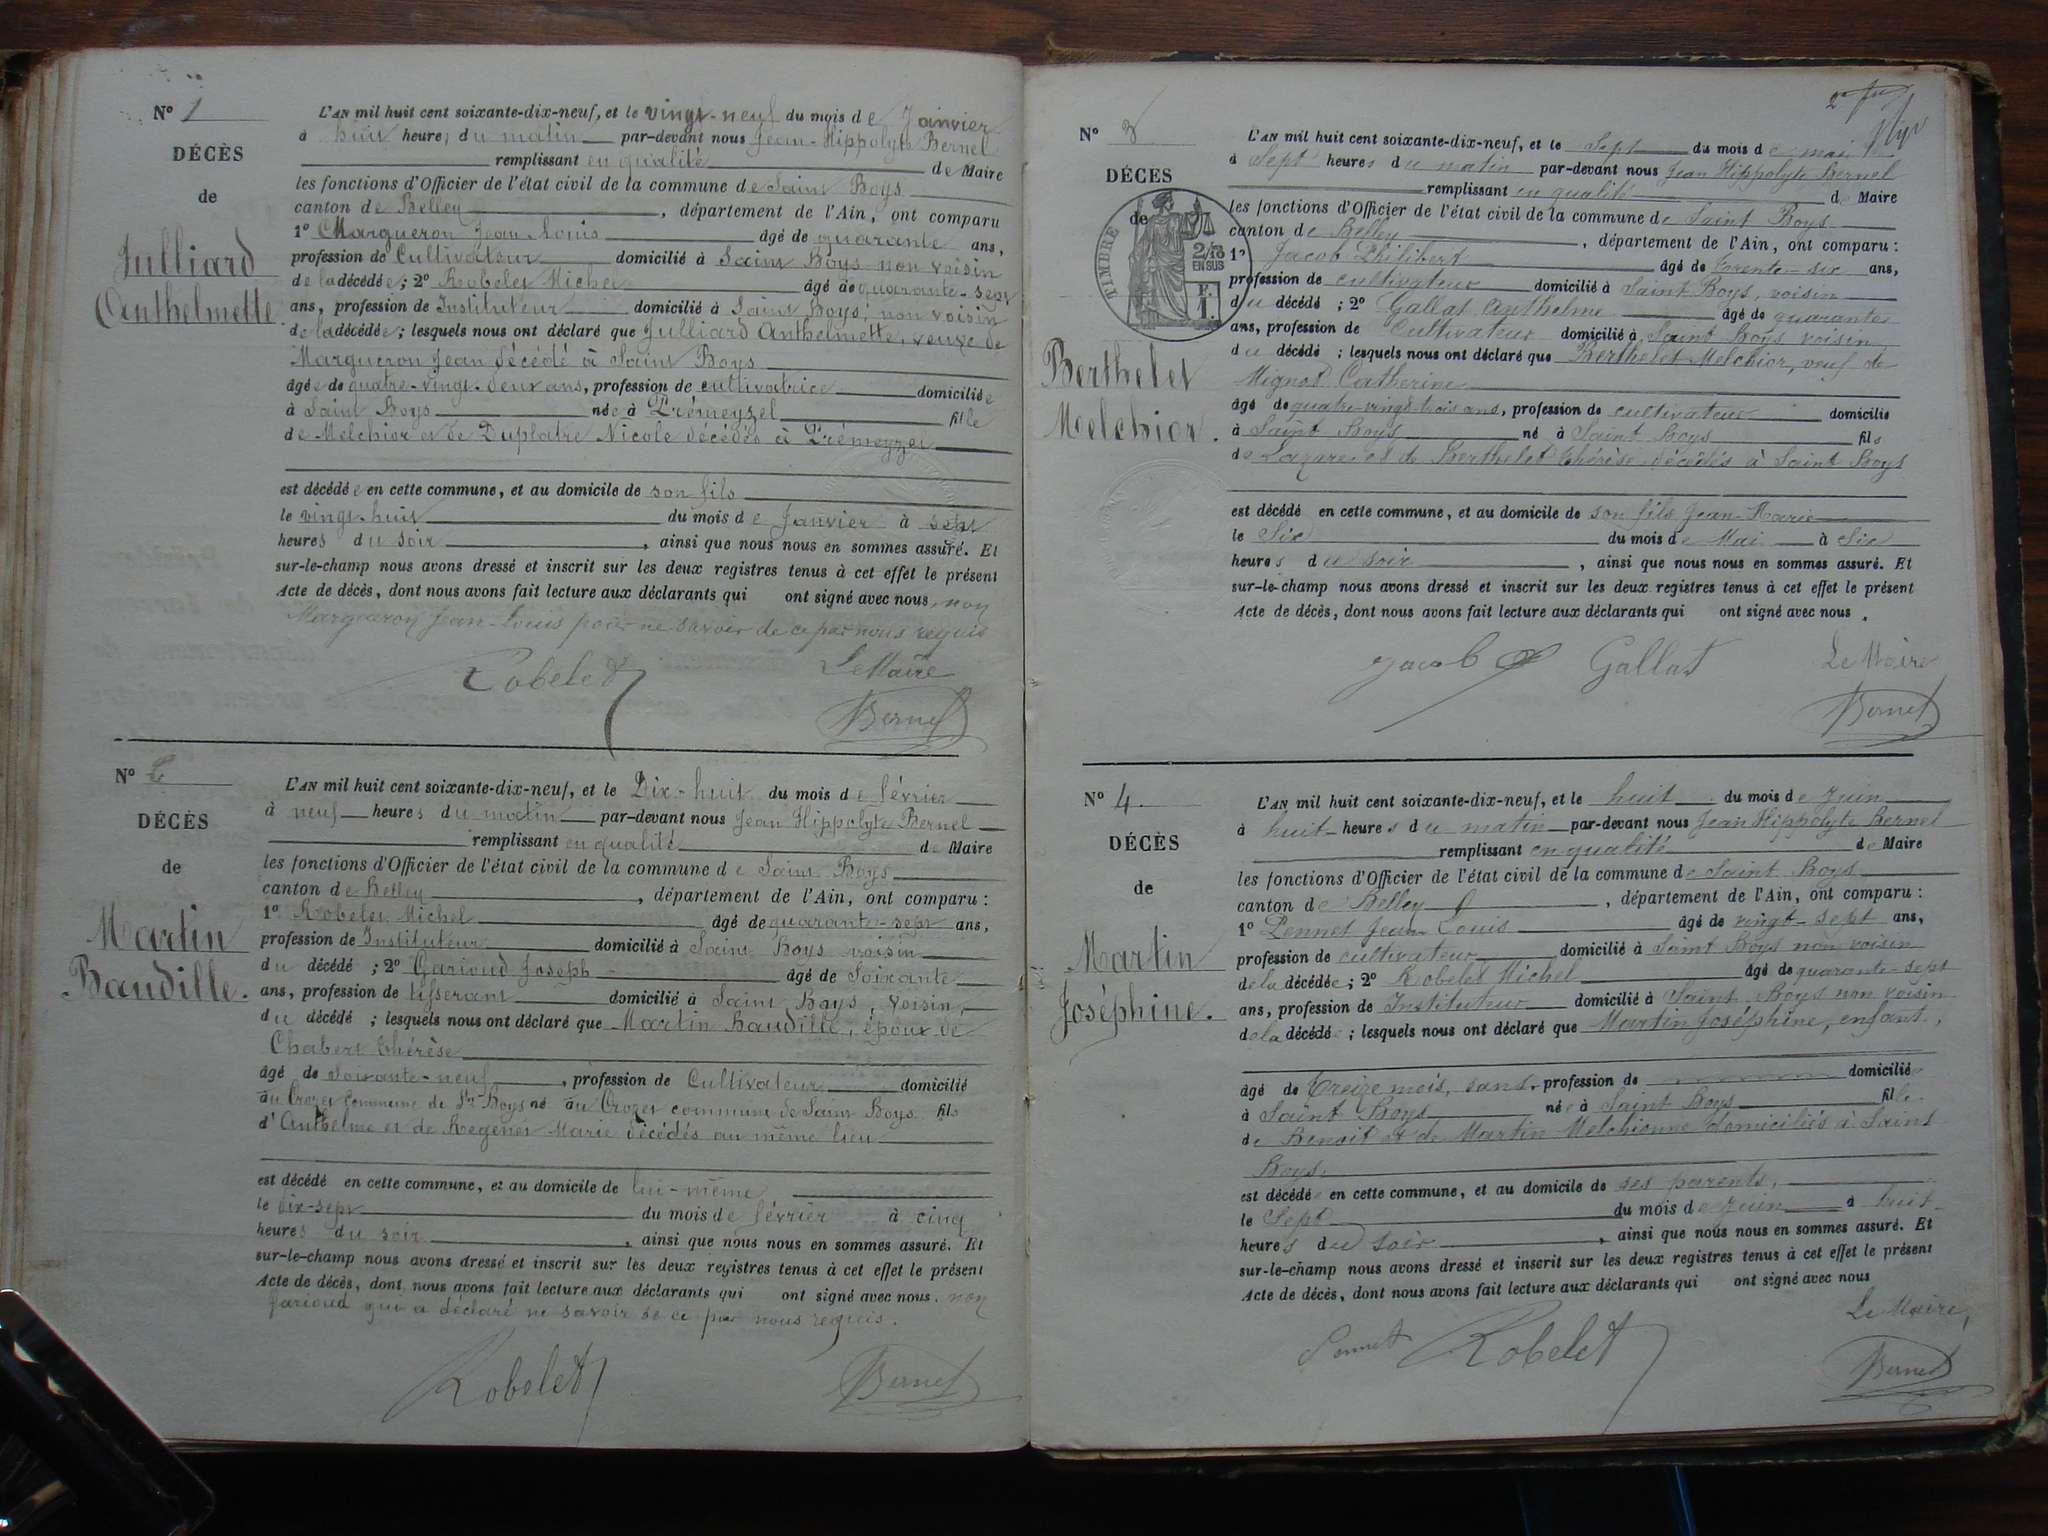 N° 1
DÉCÈS
de
Julliard
Anthelmette
L'AN mil huit cent soixante-dix-neuf, et le vingt-neuf du mois de Janvier
à huit heures du matin par-devant nous Jean-Hippolyte Bernel
remplissant en qualité de Maire
les fonctions d'Officier de l'état civil de la commune de Saint Boys
canton de Belley, département de l'Ain, ont comparu
1° Margueron Jean Louis âgé de quarante ans,
profession de Cultivateur domicilié à Saint Boys non voisin
de la décédée; 2° Robelet Michel âgé de quarante-sept
ans, profession de Instituteur domicilié à Saint Boys, non voisin
de la décédée; lesquels nous ont déclaré que Julliard Anthelmette, veuve de
Margueron Jean décédé à Saint Boys
âgée de quatre-vingt-deux ans, profession de cultivatrice domiciliée
à Saint Boys née à Prémeyzel fille
de Melchior et de Duplatre Nicole décédés à Prémeyzel
est décédée en cette commune, et au domicile de son fils
le vingt-huit du mois de Janvier à sept
heures du soir, ainsi que nous nous en sommes assuré. Et
sur-le-champ nous avons dressé et inscrit sur les deux registres tenus à cet effet le présent
Acte de décès, dont nous avons fait lecture aux déclarants qui ont signé avec nous, non
Margueron Jean-Louis pour ne savoir de ce par nous requis
Robelet
Le Maire
Bernel
N° 2
DÉCÈS
de
Martin
Baudille.
L'AN mil huit cent soixante-dix-neuf, et le Dix-huit du mois de février
à neuf heures du matin par-devant nous Jean Hippolyte Bernel
remplissant en qualité de Maire
les fonctions d'Officier de l'état civil de la commune de Saint Boys
canton de Belley, département de l'Ain, ont comparu :
1° Robelet Michel âgé de quarante-sept ans,
profession de Instituteur domicilié à Saint Boys voisin
du décédé ; 2° Garioud Joseph âgé de Soixante
ans, profession de tisserant domicilié à Saint Boys, voisin,
du décédé ; lesquels nous ont déclaré que Martin Baudille, époux de
Chabert Thérèse
âgé de soixante-neuf, profession de Cultivateur domicilié
au Crozet commune de St Boys né au Crozet commune de Saint Boys fils
d'Anthelme et de Regenet Marie décédés au même lieu
est décédé en cette commune, et au domicile de lui-même
le dix-sept du mois de février à cinq
heures du soir, ainsi que nous nous en sommes assuré. Et
sur-le-champ nous avons dressé et inscrit sur les deux registres tenus à cet effet le présent
Acte de décès, dont nous avons fait lecture aux déclarants qui ont signé avec nous. non
Garioud qui a déclaré ne savoir de ce par nous requis.
Robelet
Bernel
N° 3
DÉCÈS
de
TIMBRE
2/10
EN SUS
F.
1.
Berthelet
Melchior.
L'AN mil huit cent soixante-dix-neuf, et le Sept du mois de mai
à Sept heures du matin par-devant nous Jean Hippolyte Bernel
remplissant en qualité de Maire
les fonctions d'Officier de l'état civil de la commune de Saint Boys
canton de Belley, département de l'Ain, ont comparu :
1° Jacob Philibert âgé de trente-six ans,
profession de cultivateur domicilié à Saint Boys, voisin
du décédé ; 2° Gallat Anthelme âgé de quarante
ans, profession de Cultivateur domicilié à Saint Boys voisin
du décédé ; lesquels nous ont déclaré que Berthelet Melchior, veuf de
Mignot Catherine
âgé de quatre-vingt-trois ans, profession de cultivateur domicilié
à Saint Boys né à Saint Boys fils
de Lazare et de Berthelet Thérèse décédés à Saint Boys
est décédé en cette commune, et au domicile de son fils Jean-Marie
le Six du mois de Mai à Six
heures du soir, ainsi que nous nous en sommes assuré. Et
sur-le-champ nous avons dressé et inscrit sur les deux registres tenus à cet effet le présent
Acte de décès, dont nous avons fait lecture aux déclarants qui ont signé avec nous.
Jacob
Gallat
Le Maire
Bernel
N° 4.
DÉCÈS
de
Martin
Joséphine.
L'AN mil huit cent soixante-dix-neuf, et le huit du mois de Juin
à huit heures du matin par-devant nous Jean Hippolyte Bernel
remplissant en qualité de Maire
les fonctions d'Officier de l'état civil de la commune de Saint Boys
canton de Belley, département de l'Ain, ont comparu :
1° Pennet Jean Louis âgé de vingt-sept ans,
profession de cultivateur domicilié à Saint Boys non voisin
de la décédée; 2° Robelet Michel âgé de quarante-sept
ans, profession de Instituteur domicilié à Saint Boys non voisin
de la décédée ; lesquels nous ont déclaré que Martin Joséphine, enfant,
âgé de Treize mois, sans profession de domiciliée
à Saint Boys née à Saint Boys fille
de Benoit et de Martin Melchionne domiciliés à Saint
Boys.
est décédée en cette commune, et au domicile de ses parents,
le Sept du mois de Juin à huit
heures du soir, ainsi que nous nous en sommes assuré. Et
sur-le-champ nous avons dressé et inscrit sur les deux registres tenus à cet effet le présent
Acte de décès, dont nous avons fait lecture aux déclarants qui ont signé avec nous
Pennet
Robelet
Le Maire,
Bernel